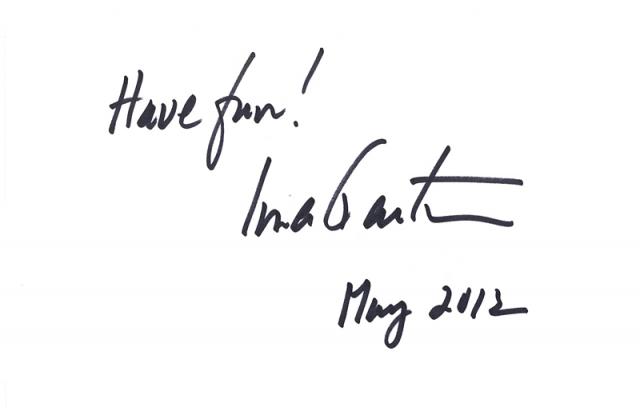 Have fun!
Ina Garten
May 2012